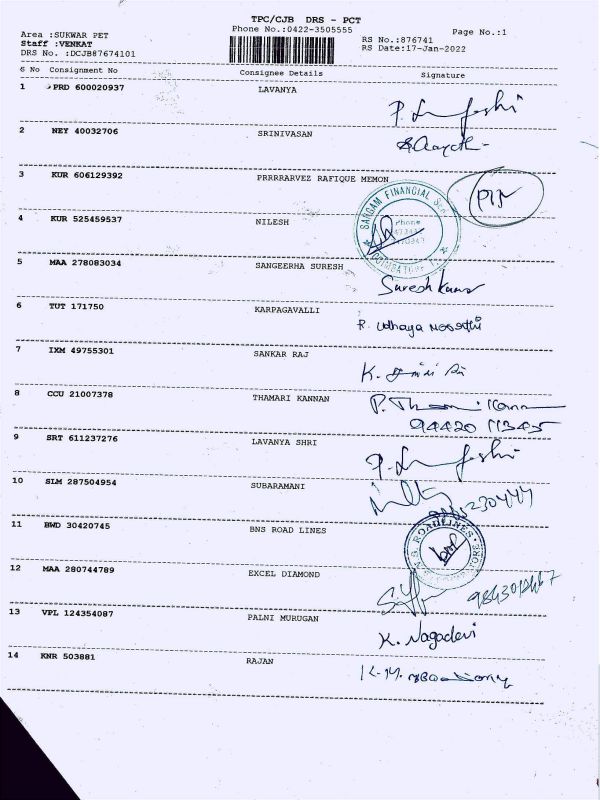 TPC/CJB DRS - PCT
Phone No.:0422-3505555
Page No.:1
Area :SUKWAR PET
Staff :VENKAT
DRS No. :DCJB87674101
RS No.:876741
RS Date:17-Jan-2022
S No Consignment No Consignee Details Signature
1 PRD 600020937 LAVANYA
2 NEY 40032706 SRINIVASAN
3 KUR 606129392 PRRRRARVEZ RAFIQUE MEMON
SARGAM FINANCIAL
Phone
4 KUR 525459537 NILESH
5 MAA 278083034 SANGEERHA SURESH
Suresh Kumar
6 TUT 171750 KARPAGAVALLI
7 IXM 49755301 SANKAR RAJ
8 CCU 21007378 THAMARI KANNAN
9 SRT 611237276 LAVANYA SHRI
10 SLM 287504954 SUBARAMANI
11 BWD 30420745 BNS ROAD LINES
ROADLINES
12 MAA 280744789 EXCEL DIAMOND
13 VPL 124354087 PALNI MURUGAN
K. Nagadevi
14 KNR 503881 RAJAN